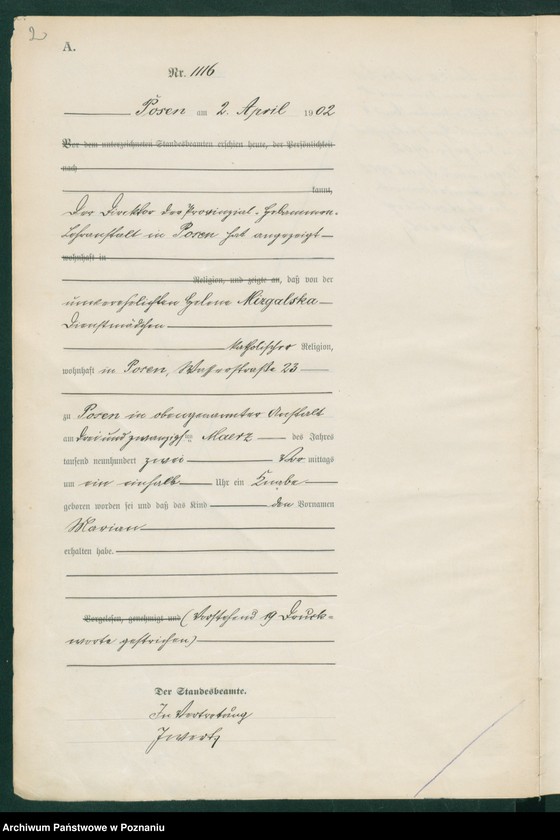 2
A.
Nr. 1116
Posen am 2. April 1902
Vor dem unterzeichneten Standesbeamten erschien heute, der Persönlichkeit
nach
kannt,
Der Direktor der Provinzial-Hebammen-
Lehranstalt in Posen hat angezeigt
wohnhaft in
Religion, und zeigte an, daß von der
unverehelichten Helene Mizgalska
Dienstmädchen
katholischer Religion,
wohnhaft in Posen, Wasserstraße 23
zu Posen in obengenannter Anstalt
am drei und zwanzigsten Maerz des Jahres
tausend neunhundert zwei Vor mittags
um ein einhalb Uhr ein Knabe
geboren worden sei und daß das Kind den Vornamen
Marian
erhalten habe.
Vorgelesen, genehmigt und (Vorstehend 19 Druck-
worte gestrichen)
Der Standesbeamte.
In Vertretung
Archiwum Państwowe w Poznaniu